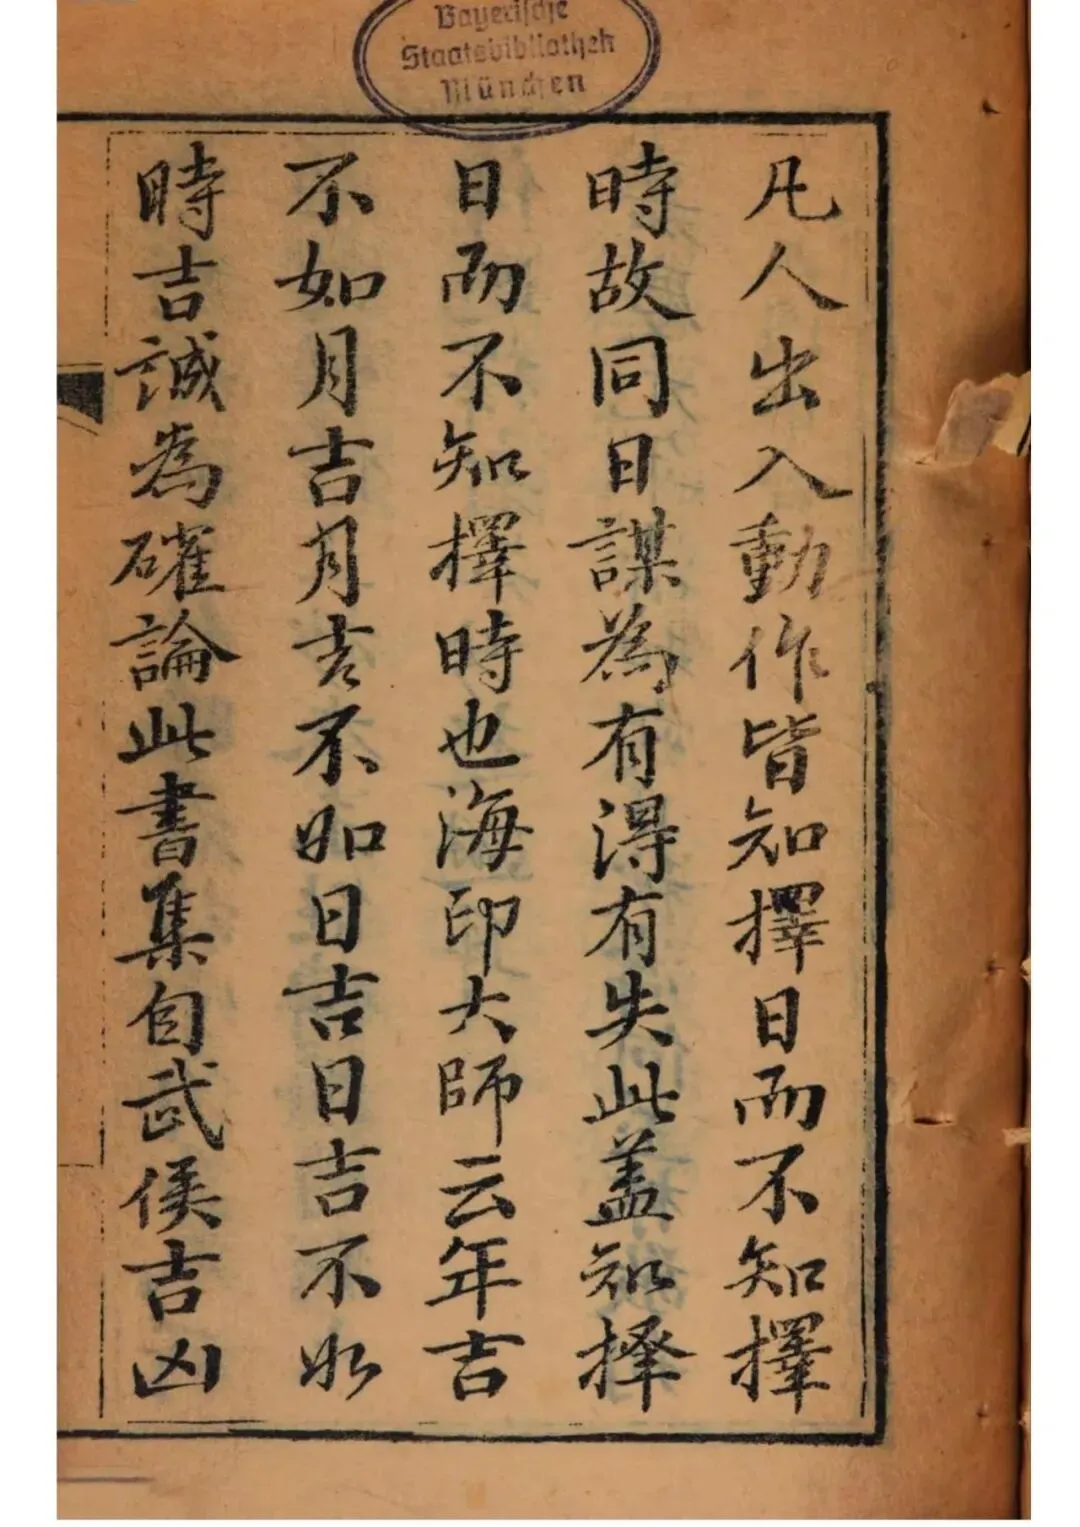 Bayerische
Staatsbibliothek
München
凡人出入動作皆知擇日而不知擇
時故同日謀為有得有失此盖知擇
日而不知擇時也海印大師云年吉
不如月吉月吉不如日吉日吉不如
時吉誠為確論此書集自武侯吉凶